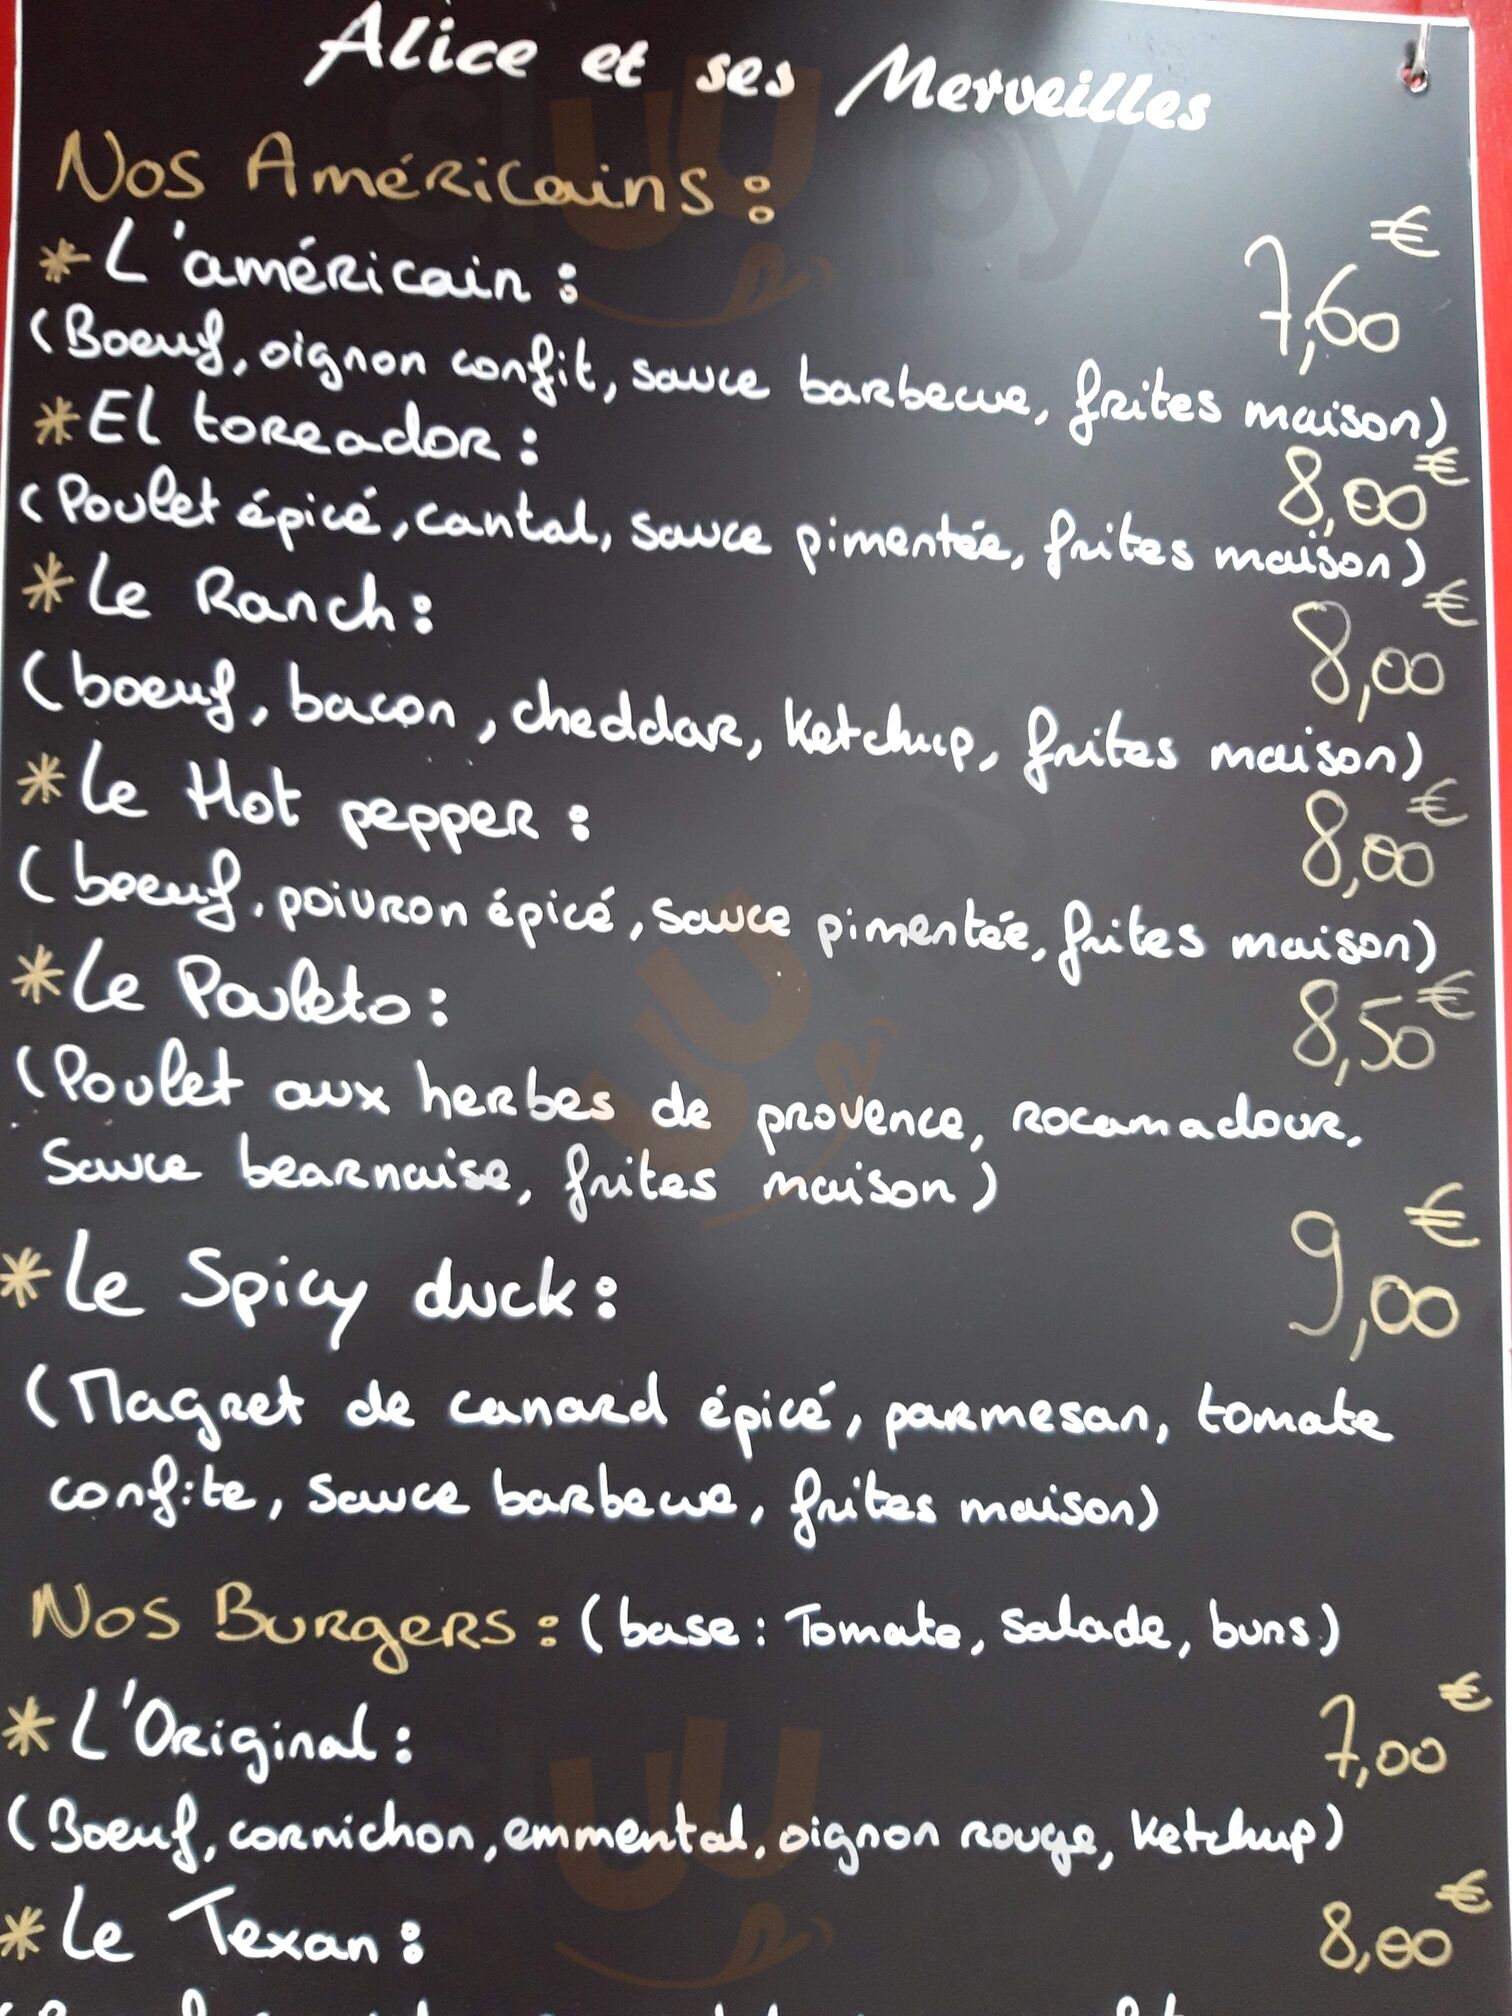 Alice et ses Merveilles
Nos Américains :
* L'américain : 7,60 €
(Boeuf, oignon confit, sauce barbecue, frites maison)
* El toreador : 8,00 €
(Poulet épicé, cantal, sauce pimentée, frites maison)
* Le Ranch : 8,00 €
(boeuf, bacon, cheddar, ketchup, frites maison)
* Le Hot pepper : 8,00 €
(boeuf, poivron épicé, sauce pimentée, frites maison)
* Le Pouleto : 8,50 €
(Poulet aux herbes de provence, rocamadour,
sauce bearnaise, frites maison)
* Le Spicy duck : 9,00 €
(Magret de canard épicé, parmesan, tomate
confite, sauce barbecue, frites maison)
Nos Burgers : (base : Tomate, salade, buns)
* L'Original : 7,00 €
(Boeuf, cornichon, emmental, oignon rouge, ketchup)
* Le Texan : 8,00 €